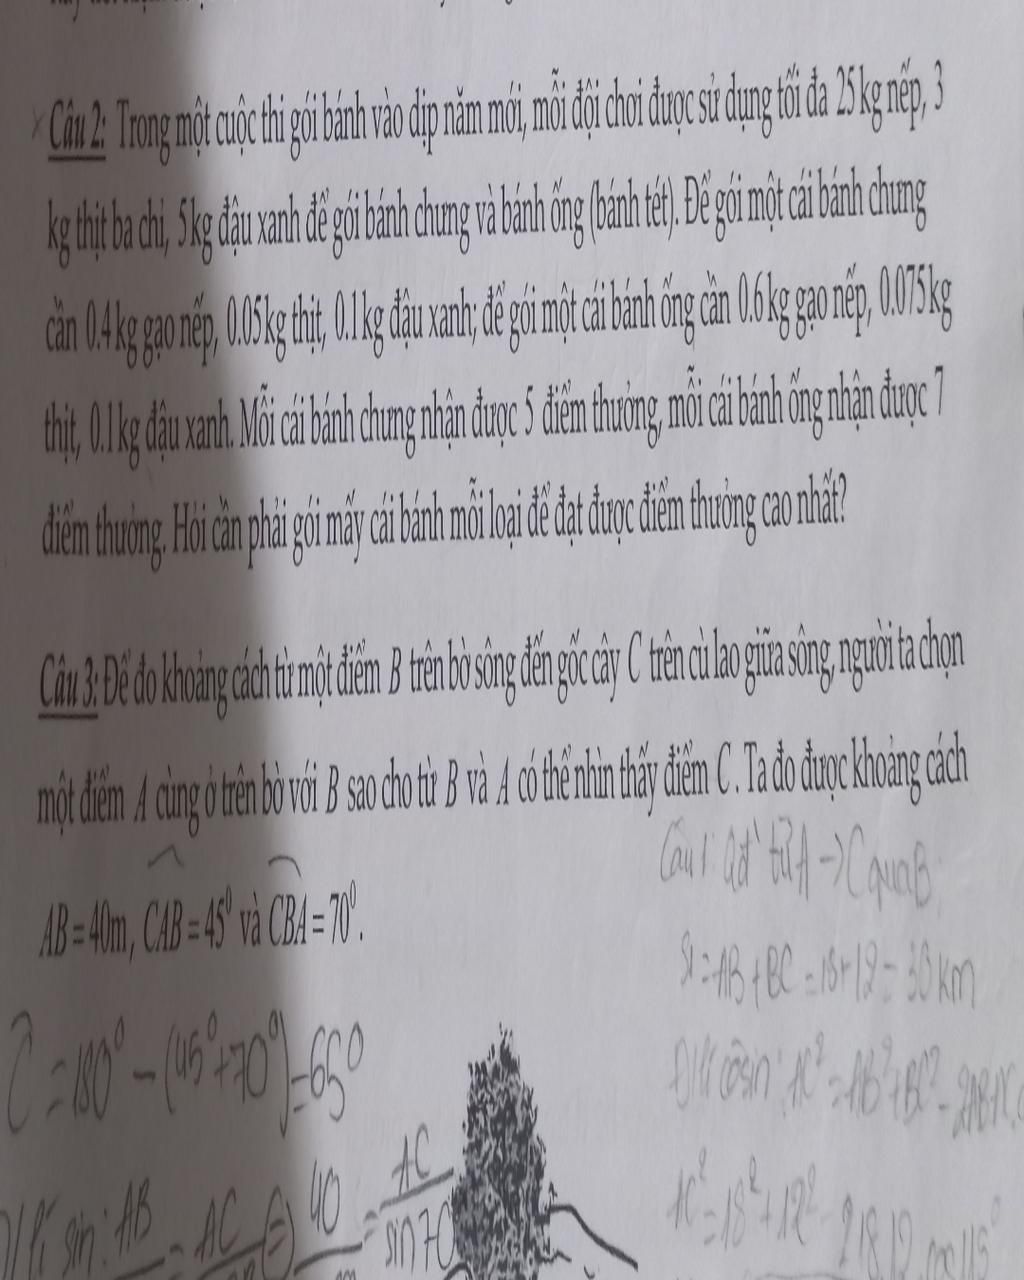 Câu 2: Trong một cuộc thi gói bánh vào dịp năm mới, mỗi đội chơi được sử dụng tối đa 25kg nếp, 3
kg thịt ba chỉ, 5kg đậu xanh để gói bánh chưng và bánh ống (bánh tét). Để gói một cái bánh chưng
cần 0.4kg gạo nếp, 0.05kg thịt, 0.1kg đậu xanh; để gói một cái bánh ống cần 0.6kg gạo nếp, 0.075kg
thịt, 0.1kg đậu xanh. Mỗi cái bánh chưng nhận được 5 điểm thưởng, mỗi cái bánh ống nhận được 7
điểm thưởng. Hỏi cần phải gói mấy cái bánh mỗi loại để đạt được điểm thưởng cao nhất?
Câu 3: Để đo khoảng cách từ một điểm B trên bờ sông đến gốc cây C trên cù lao giữa sông, người ta chọn
một điểm A cùng ở trên bờ với B sao cho từ B và A có thể nhìn thấy điểm C. Ta đo được khoảng cách
AB = 40m, CAB = 45⁰ và CBA = 70⁰.
Câu 1: Qđ từ A → C qua B:
S1 = AB + BC = 18 + 12 = 30 km
Đlí côsin: AC² = AB² + BC² - 2AB.
AC² = 18² + 12² - 2.18.12.cos
Ĉ = 180⁰ - (45⁰ + 70⁰) = 65⁰
lí sin: AB = AC ⇔ 40 = AC
sin70